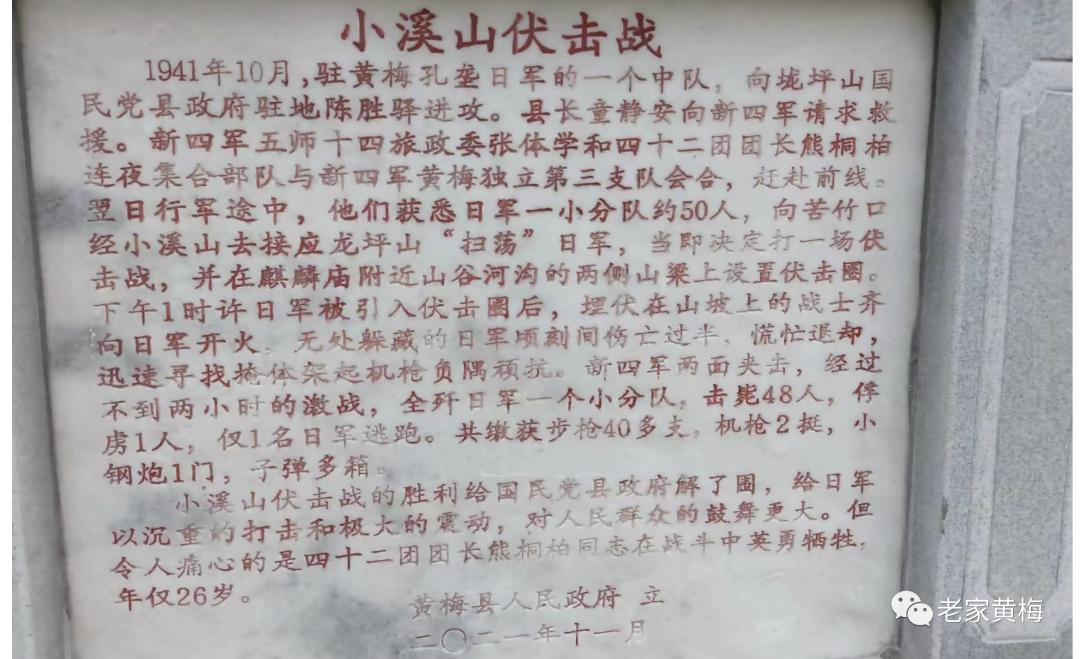 小溪山伏击战
1941年10月,驻黄梅孔垄日军的一个中队，向垅坪山国
民党县政府驻地陈胜驿进攻。县长童静安向新四军请求救
援。新四军五师十四旅政委张体学和四十二团团长熊桐柏
连夜集合部队与新四军黄梅独立第三支队会合，赶赴前线。
翌日行军途中，他们获悉日军一小分队约50人，向苦竹口
经小溪山去接应龙坪山“扫荡”日军，当即决定打一场伏
击战，并在麒麟庙附近山谷河沟的两侧山梁上设置伏击圈。
下午1时许日军被引入伏击圈后，埋伏在山坡上的战士齐
向日军开火，无处躲藏的日军顷刻间伤亡过半，慌忙退却，
迅速寻找掩体架起机枪负隅顽抗。新四军两面夹击，经过
不到两小时的激战，全歼日军一个小分队，击毙48人，俘
虏1人，仅1名日军逃跑。共缴获步枪40多支，机枪2挺，小
钢炮1门，子弹多箱。
小溪山伏击战的胜利给国民党县政府解了围，给日军
以沉重的打击和极大的震动，对人民群众的鼓舞更大。但
令人痛心的是四十二团团长熊桐柏同志在战斗中英勇牺牲，
年仅26岁。
黄梅县人民政府 立
二〇二一年十一月
老家黄梅